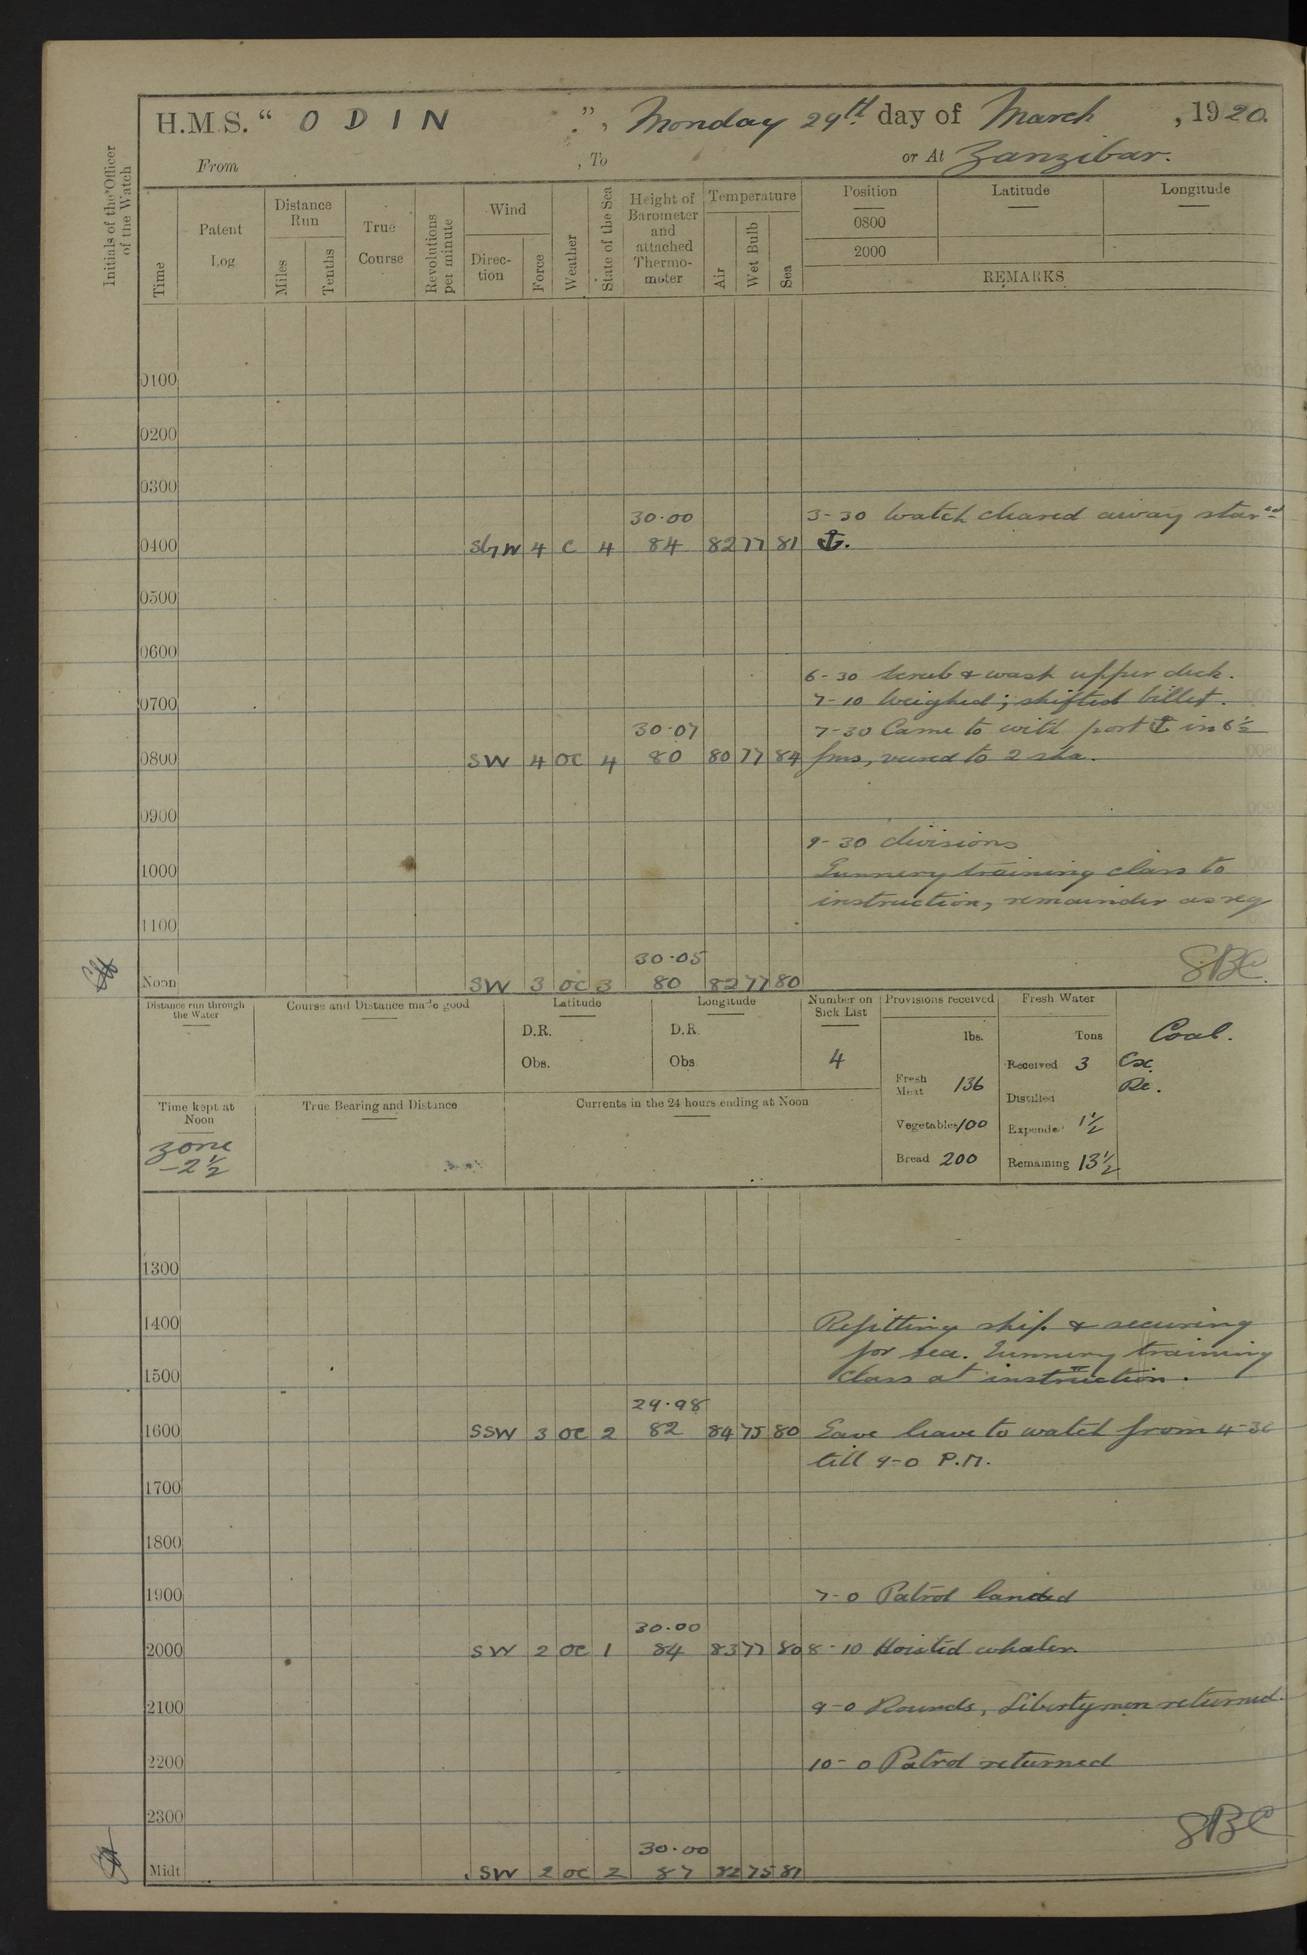 H.M.S. “ O D I N ”, Monday 29th day of March, 1920.
From , To or At Zanzibar.
Initials of the Officer of the Watch
Time
Patent Log
Distance Run
Miles
Tenths
True Course
Revolutions per minute
Wind
Direction
Force
Weather
State of the Sea
Height of Barometer and attached Thermometer
Temperature
Air
Wet Bulb
Sea
Position Latitude Longitude
0800
2000
REMARKS
0100
0200
0300
30.00 3-30 Watch cleared away starbd
0400 SbyW 4 C 4 84 82 77 81 ⚓.
0500
0600
6-30 Scrub & wash upper deck.
0700 7-10 Weighed; shifted billet.
30.07 7-30 Came to with port ⚓ in 6½
0800 SW 4 OC 4 80 80 77 84 fms, veered to 2 sha.
0900
9-30 divisions
1000 Gunnery training class to
instruction, remainder as req
1100
30.05
Noon SW 3 OC 3 80 82 77 80 SBC
Distance run through the Water
Course and Distance made good
Latitude
D.R.
Obs.
Longitude
D.R.
Obs.
Number on Sick List
4
Provisions received
lbs.
Fresh Meat 136
Vegetables 100
Bread 200
Fresh Water
Tons
Received 3
Distilled
Expended 1½
Remaining 13½
Coal.
Ex.
Re.
Time kept at Noon
Zone
-2½
True Bearing and Distance
Currents in the 24 hours ending at Noon
1300
1400 Refitting ship & securing
for sea. Gunnery training
1500 class at instruction.
29.98
1600 SSW 3 OC 2 82 84 75 80 Gave leave to watch from 4-30
till 9-0 P.M.
1700
1800
1900 7-0 Patrol landed
30.00
2000 SW 2 OC 1 84 83 77 80 8-10 Hoisted whaler.
2100 9-0 Rounds, Libertymen returned.
2200 10-0 Patrol returned
2300 SBC
30.00
Midt SW 2 OC 2 87 82 75 81